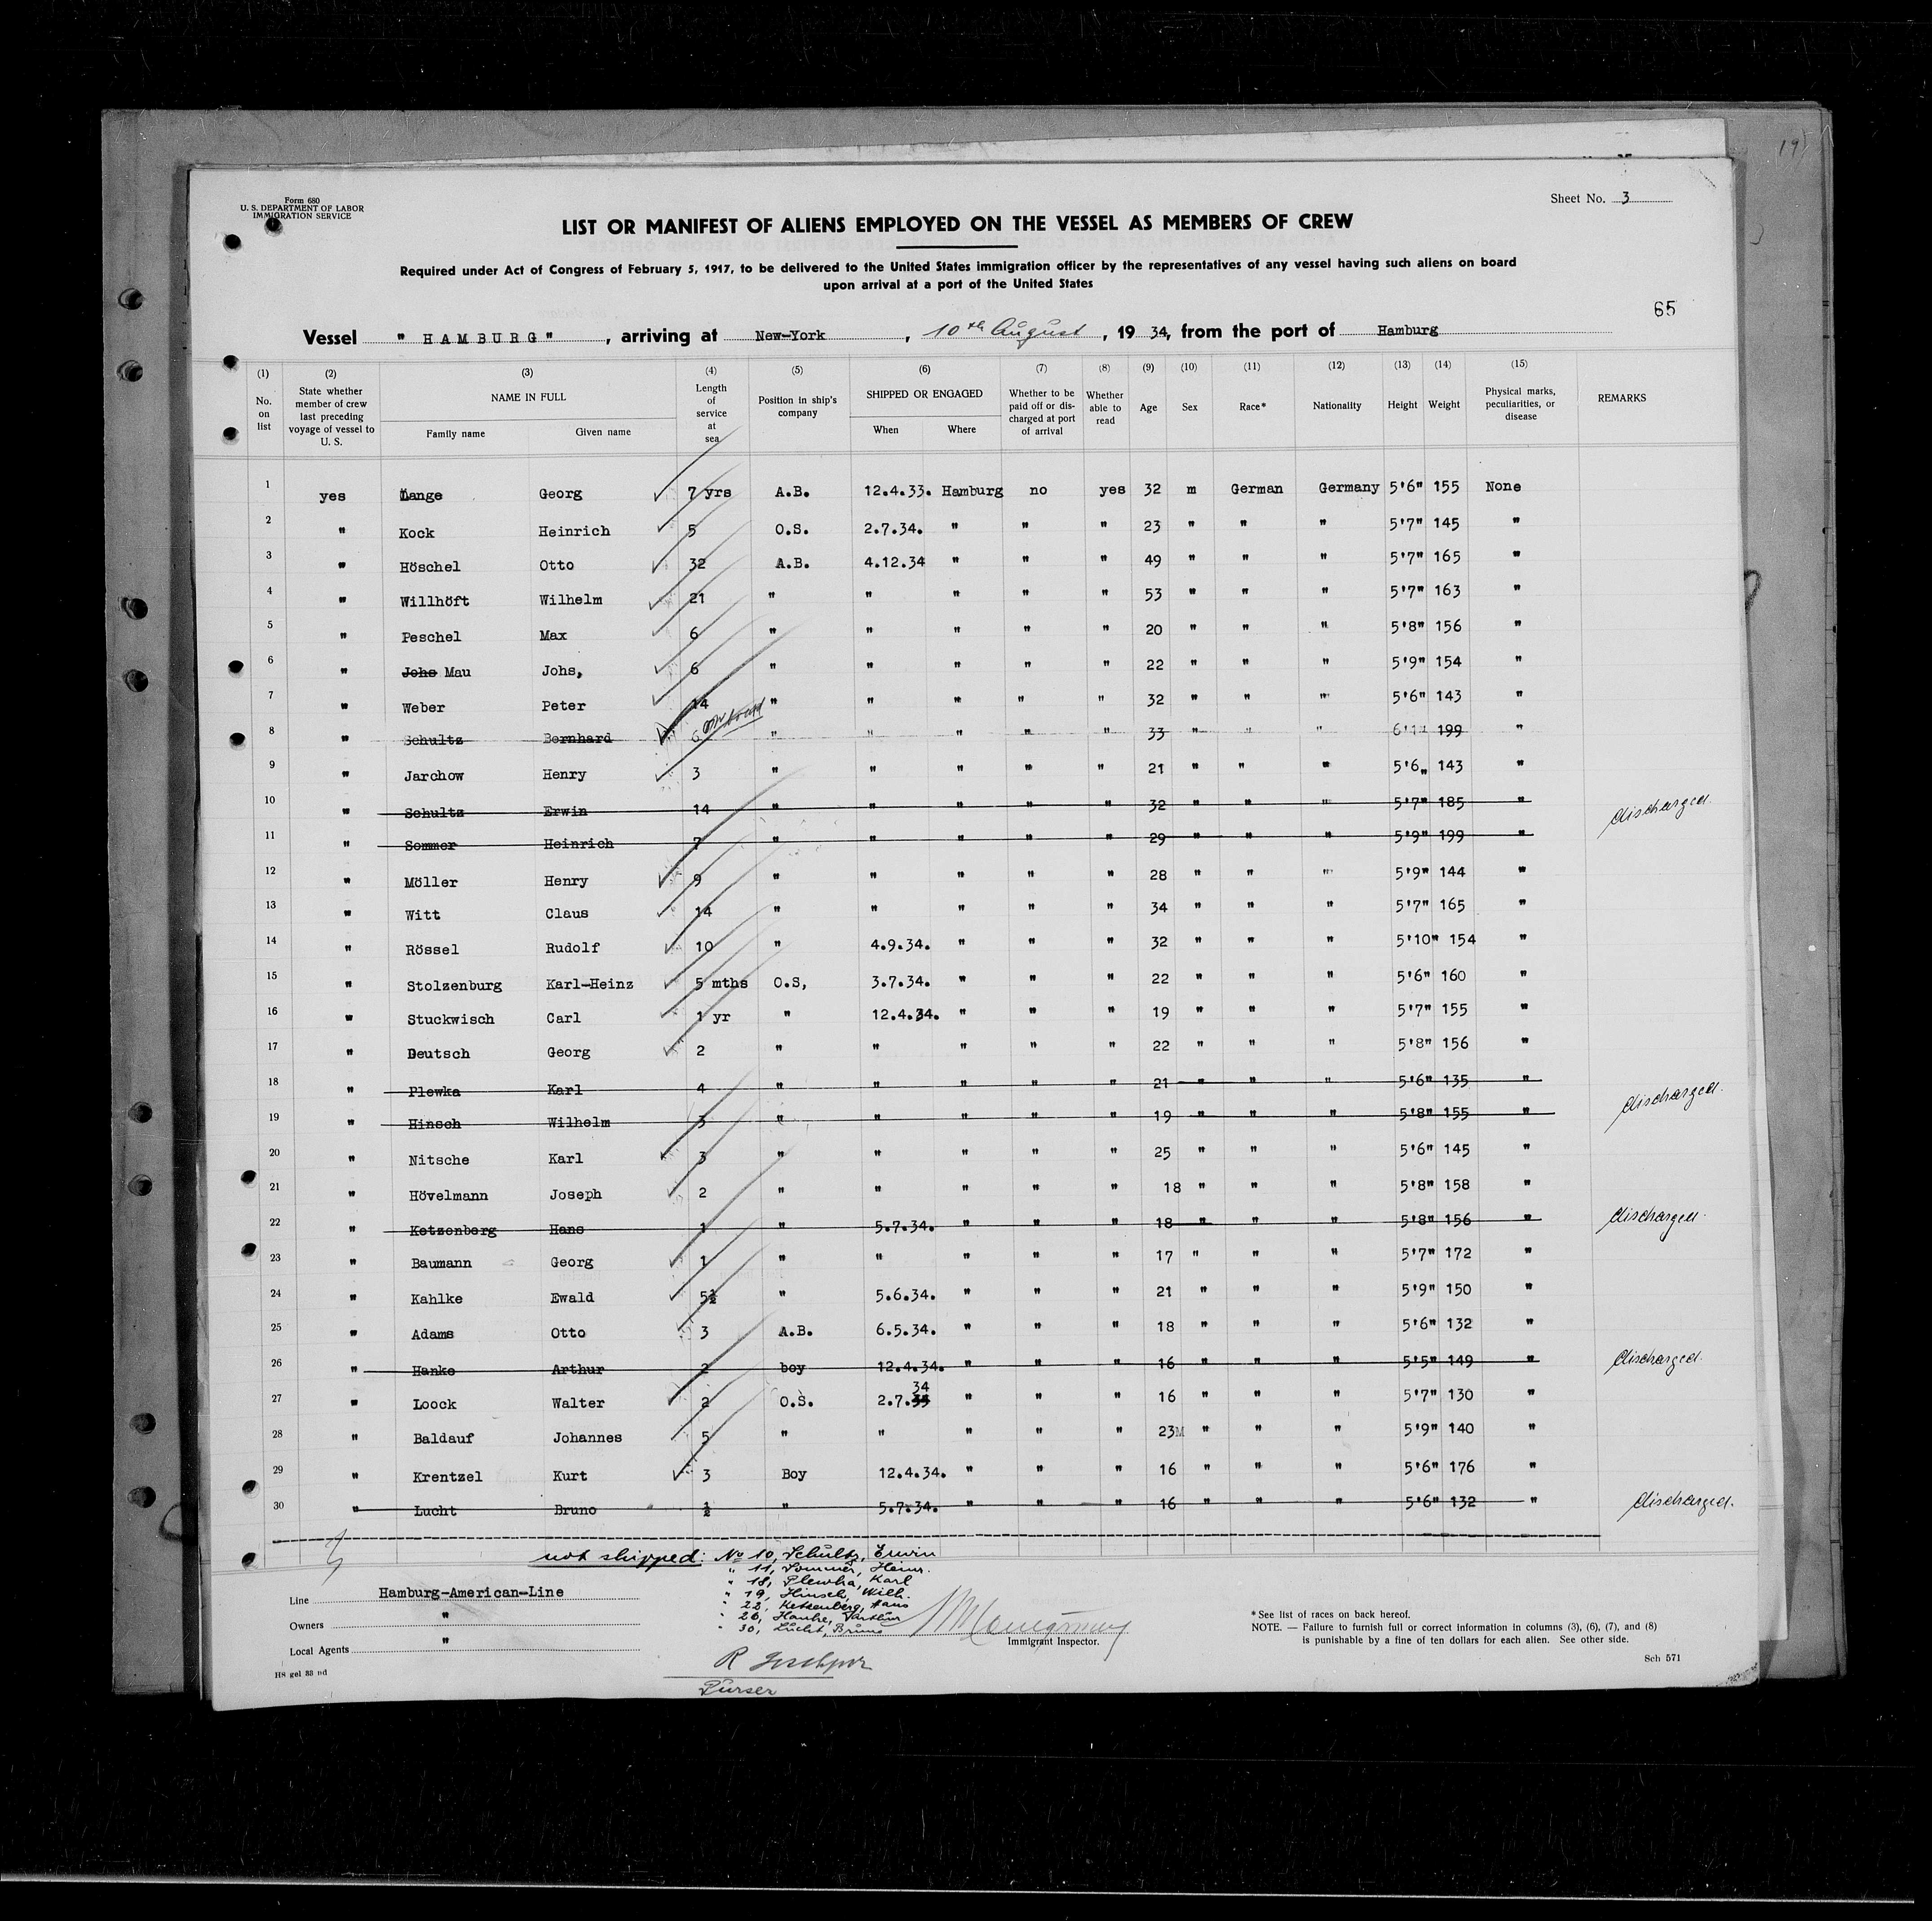 Form 680
U. S. DEPARTMENT OF LABOR
IMMIGRATION SERVICE
Sheet No. 3
LIST OR MANIFEST OF ALIENS EMPLOYED ON THE VESSEL AS MEMBERS OF CREW
Required under Act of Congress of February 5, 1917, to be delivered to the United States immigration officer by the representatives of any vessel having such aliens on board
upon arrival at a port of the United States
65
Vessel " HAMBURG" , arriving at New-York , 10th August , 19 34, from the port of Hamburg
(1) No. on list (2) State whether member of crew last preceding voyage of vessel to U. S. (3) NAME IN FULL Family name Given name (4) Length of service at sea (5) Position in ship's company (6) SHIPPED OR ENGAGED When Where (7) Whether to be paid off or discharged at port of arrival (8) Whether able to read (9) Age (10) Sex (11) Race* (12) Nationality (13) Height (14) Weight (15) Physical marks, peculiarities, or disease REMARKS
1 yes Lange Georg 7 yrs A.B. 12.4.33. Hamburg no yes 32 m German Germany 5'6" 155 None
2 " Kock Heinrich 5 O.S. 2.7.34. " " " 23 " " " 5'7" 145 "
3 " Höschel Otto 32 A.B. 4.12.34 " " " 49 " " " 5'7" 165 "
4 " Willhöft Wilhelm 21 " " " " " 53 " " " 5'7" 163 "
5 " Peschel Max 6 " " " " " 20 " " " 5'8" 156 "
6 " Johs Mau Johs, 6 " " " " " 22 " " " 5'9" 154 "
7 " Weber Peter 14 " " " " " 32 " " " 5'6" 143 "
8 " Schultz Bernhard 6 " " " " " 33 " " " 6'1" 199 "
9 " Jarchow Henry 3 " " " " " 21 " " " 5'6" 143 "
10 " Schultz Erwin 14 " " " " " 32 " " " 5'7" 185 " discharged.
11 " Sommer Heinrich 7 " " " " " 29 " " " 5'9" 199 "
12 " Möller Henry 9 " " " " " 28 " " " 5'9" 144 "
13 " Witt Claus 14 " " " " " 34 " " " 5'7" 165 "
14 " Rössel Rudolf 10 " 4.9.34. " " " 32 " " " 5'10" 154 "
15 " Stolzenburg Karl-Heinz 5 mths O.S, 3.7.34. " " " 22 " " " 5'6" 160 "
16 " Stuckwisch Carl 1 yr " 12.4.34. " " " 19 " " " 5'7" 155 "
17 " Deutsch Georg 2 " " " " " 22 " " " 5'8" 156 "
18 " Plewka Karl 4 " " " " " 21 " " " 5'6" 135 " discharged.
19 " Hinsch Wilhelm 3 " " " " " 19 " " " 5'8" 155 "
20 " Nitsche Karl 3 " " " " " 25 " " " 5'6" 145 "
21 " Hövelmann Joseph 2 " " " " " 18 " " " 5'8" 158 "
22 " Ketzenberg Hans 1 " 5.7.34. " " " 18 " " " 5'8" 156 " discharged.
23 " Baumann Georg 1 " " " " " 17 " " " 5'7" 172 "
24 " Kahlke Ewald 5½ " 5.6.34. " " " 21 " " " 5'9" 150 "
25 " Adams Otto 3 A.B. 6.5.34. " " " 18 " " " 5'6" 132 "
26 " Hanke Arthur 2 boy 12.4.34. " " " 16 " " " 5'5" 149 " discharged.
27 " Loock Walter 2 O.S. 2.7.34 " " " 16 " " " 5'7" 130 "
28 " Baldauf Johannes 5 " " " " " 23M " " " 5'9" 140 "
29 " Krentzel Kurt 3 Boy 12.4.34. " " " 16 " " " 5'6" 176 "
30 " Lucht Bruno ½ " 5.7.34. " " " 16 " " " 5'6" 132 " discharged.
not shipped: No 10, Schultz, Erwin
" 11, Sommer, Heinr.
" 18, Plewka, Karl
" 19, Hinsch, Wilh.
" 22, Ketzenberg, Hans
" 26, Hanke, Arthur
" 30, Lucht, Bruno
Line Hamburg-American-Line
Owners "
Local Agents "
HS gel 33 nd
Immigrant Inspector.
Purser
*See list of races on back hereof.
NOTE. — Failure to furnish full or correct information in columns (3), (6), (7), and (8)
is punishable by a fine of ten dollars for each alien. See other side.
Sch 571